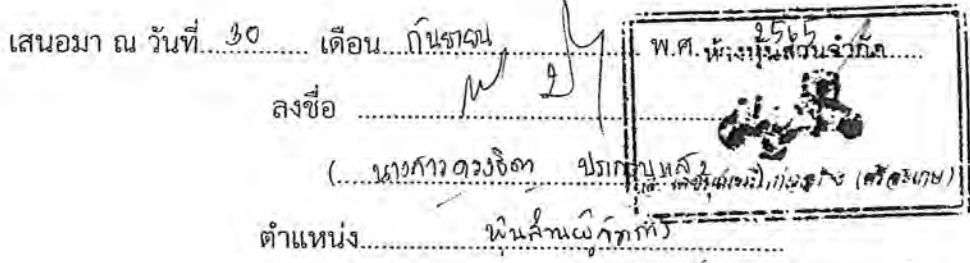 เสนอมา ณ วันที่ 30 เดือน กันยายน พ.ศ. 2565
ห้างหุ้นส่วนจำกัด
ลงชื่อ
( นางสาวดวงธิดา
(ศรีสะเกษ)
ตำแหน่ง หุ้นส่วนผู้จัดการ